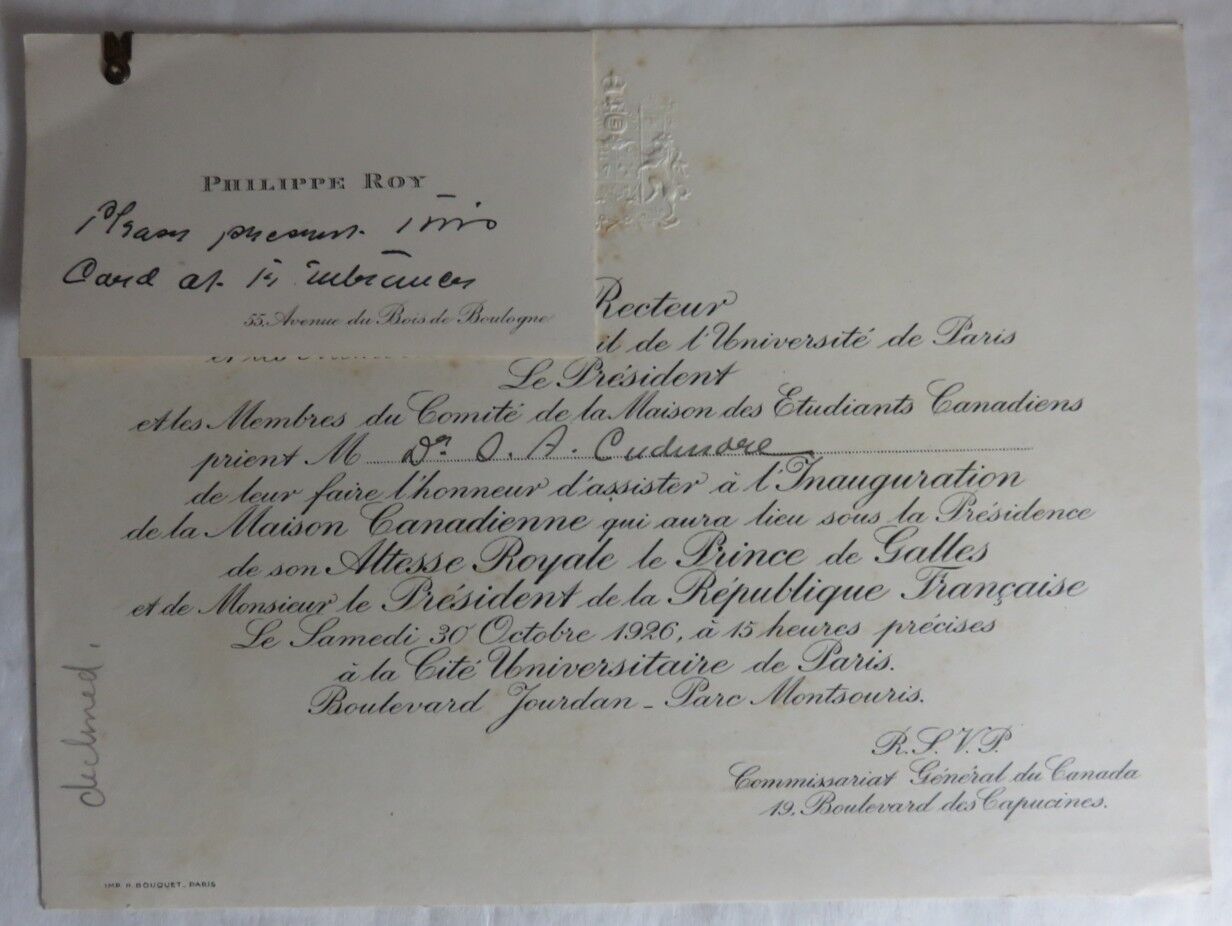 PHILIPPE ROY
Please present this
Card at the entrance
55, Avenue du Bois de Boulogne
Recteur
il de l'Université de Paris
Le Président
et les Membres du Comité de la Maison des Etudiants Canadiens
prient M Dr. O. A. Cudmore
de leur faire l'honneur d'assister à l'Inauguration
de la Maison Canadienne qui aura lieu sous la Présidence
de son Altesse Royale le Prince de Galles
et de Monsieur le Président de la République Française
Le Samedi 30 Octobre 1926, à 15 heures précises
à la Cité Universitaire de Paris.
Boulevard Jourdan - Parc Montsouris.
R.S.V.P.
Commissariat Général du Canada
19, Boulevard des Capucines.
declined.
IMP. H. BOUQUET_PARIS